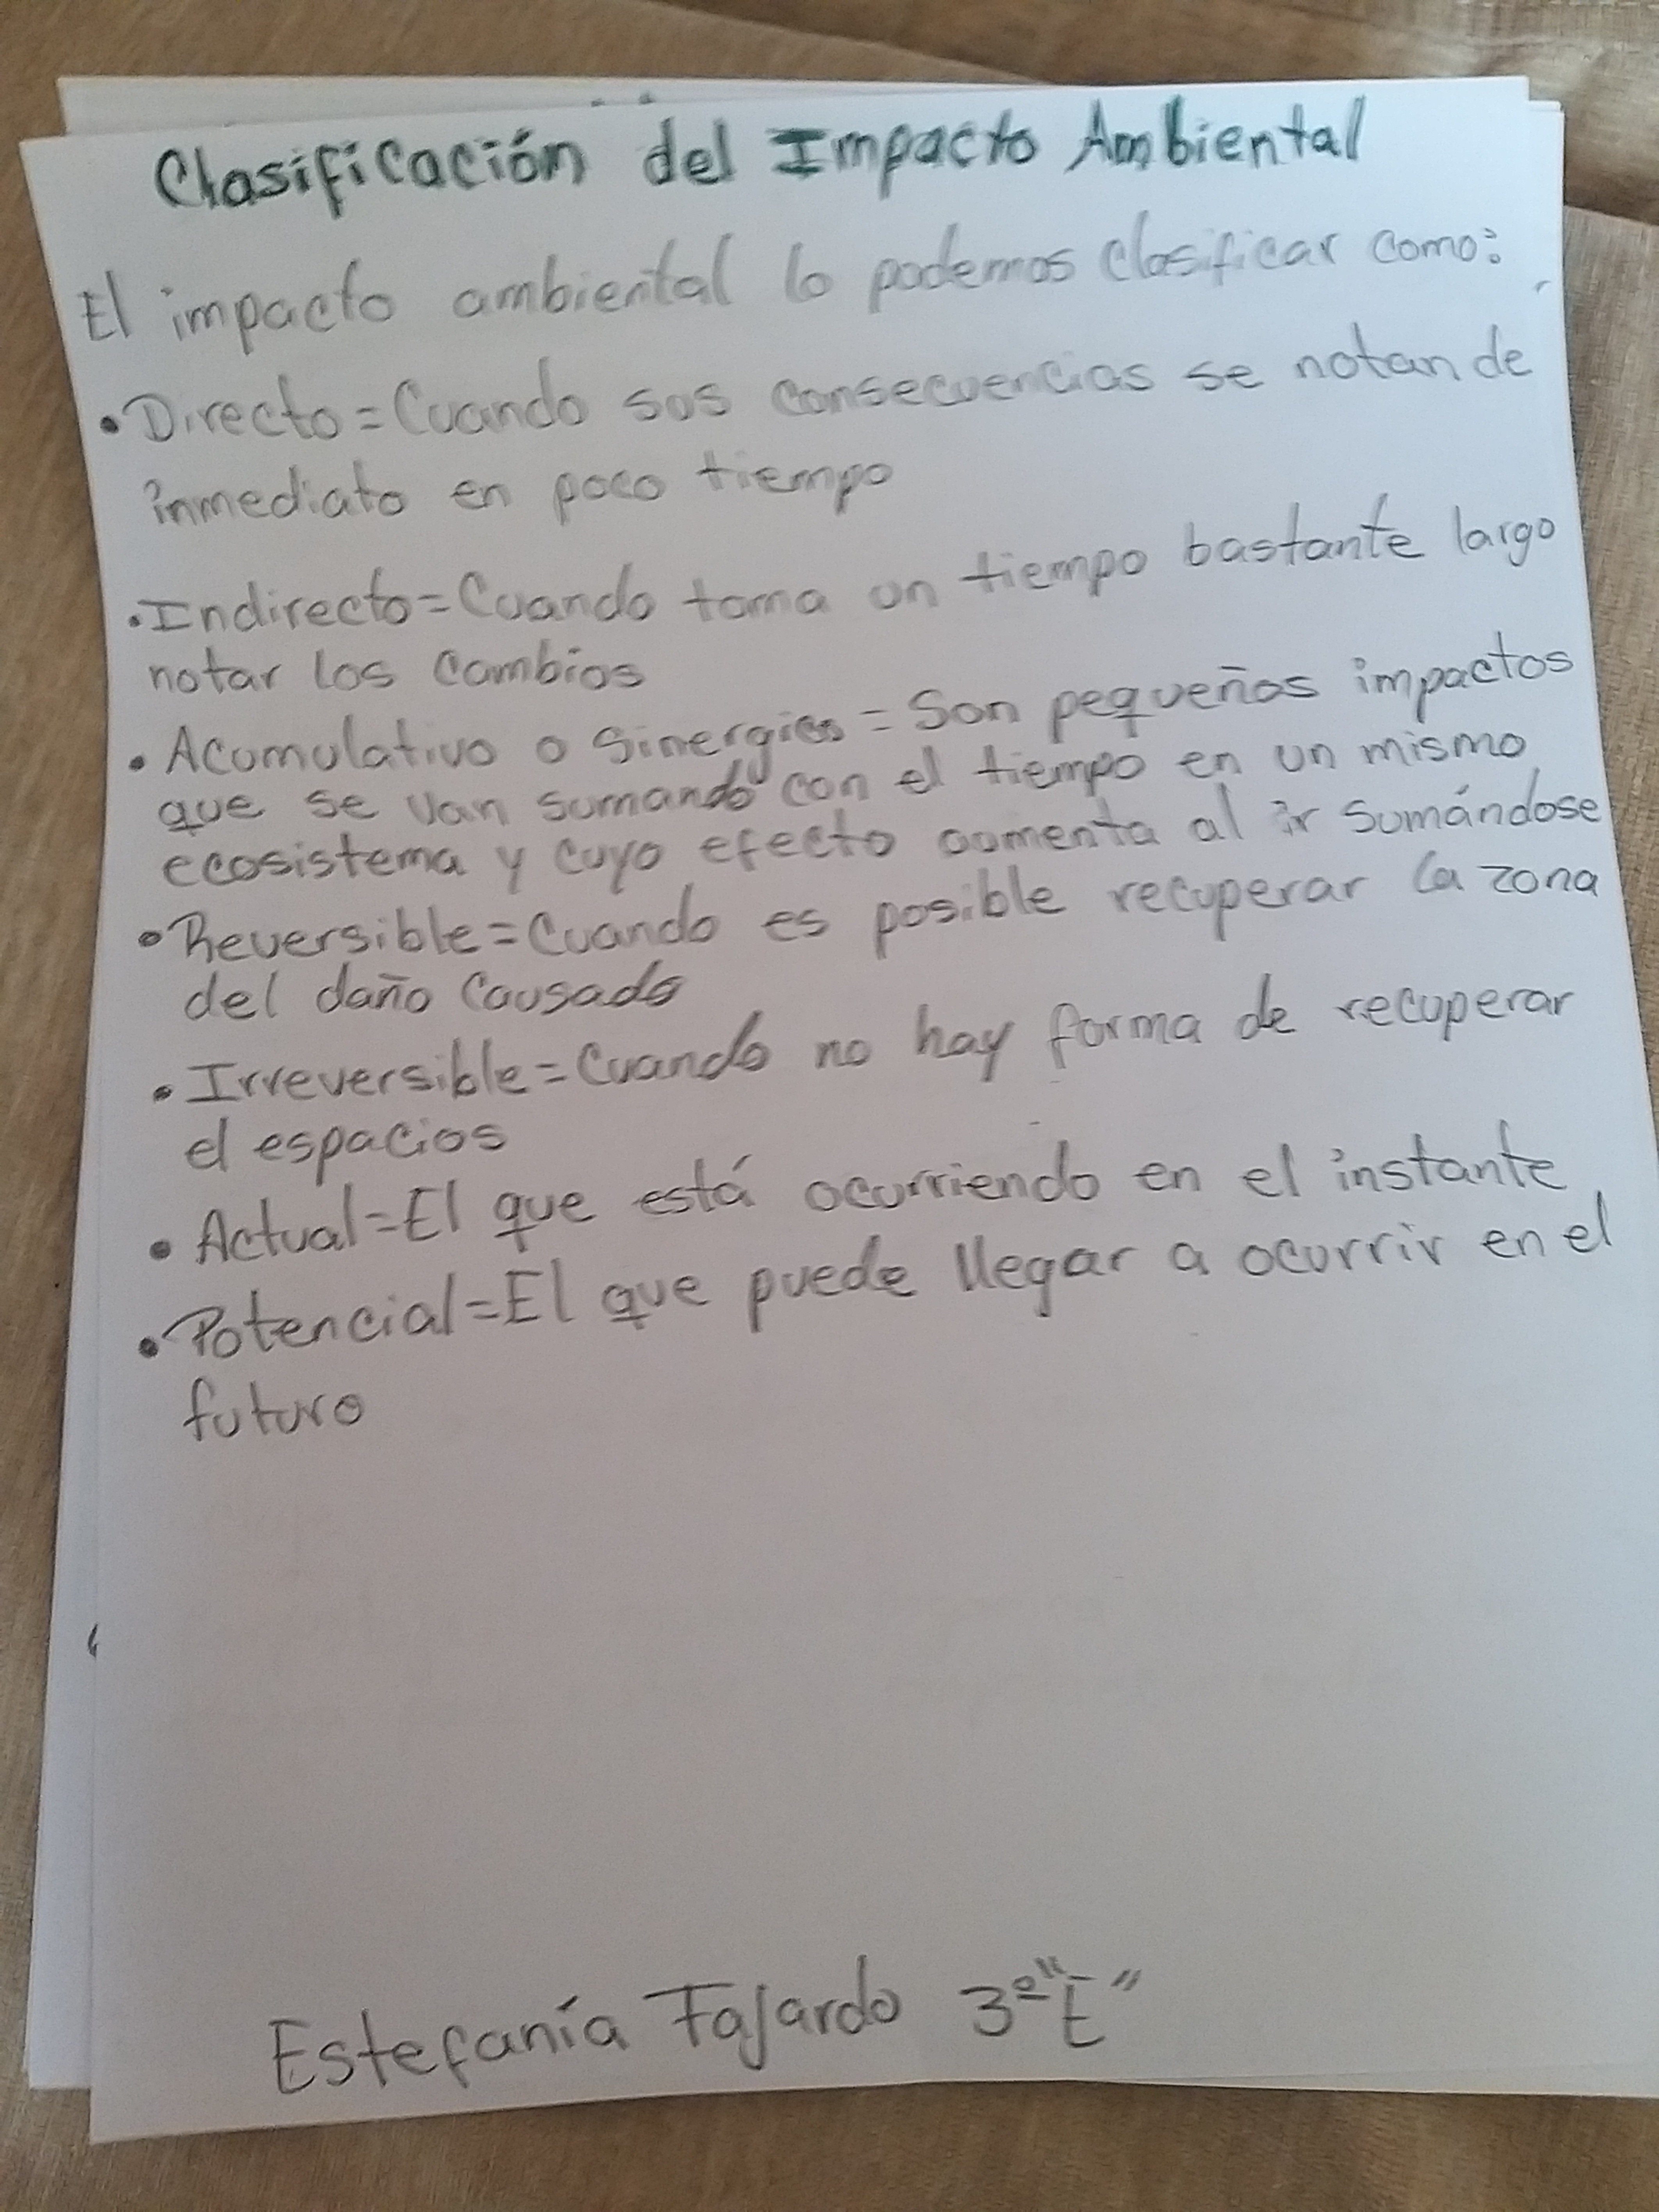 Clasificación del Impacto Ambiental
El impacto ambiental lo podemos clasificar como:
• Directo = Cuando sus consecuencias se notan de
inmediato en poco tiempo
• Indirecto = Cuando toma un tiempo bastante largo
notar los cambios
• Acumulativo o Sinergico = Son pequeños impactos
que se van sumando con el tiempo en un mismo
ecosistema y cuyo efecto aumenta al ir sumándose
• Reversible = Cuando es posible recuperar la zona
del daño causado
• Irreversible = Cuando no hay forma de recuperar
el espacios
• Actual = El que está ocurriendo en el instante
• Potencial = El que puede llegar a ocurrir en el
futuro
Estefanía Fajardo 3º "E"